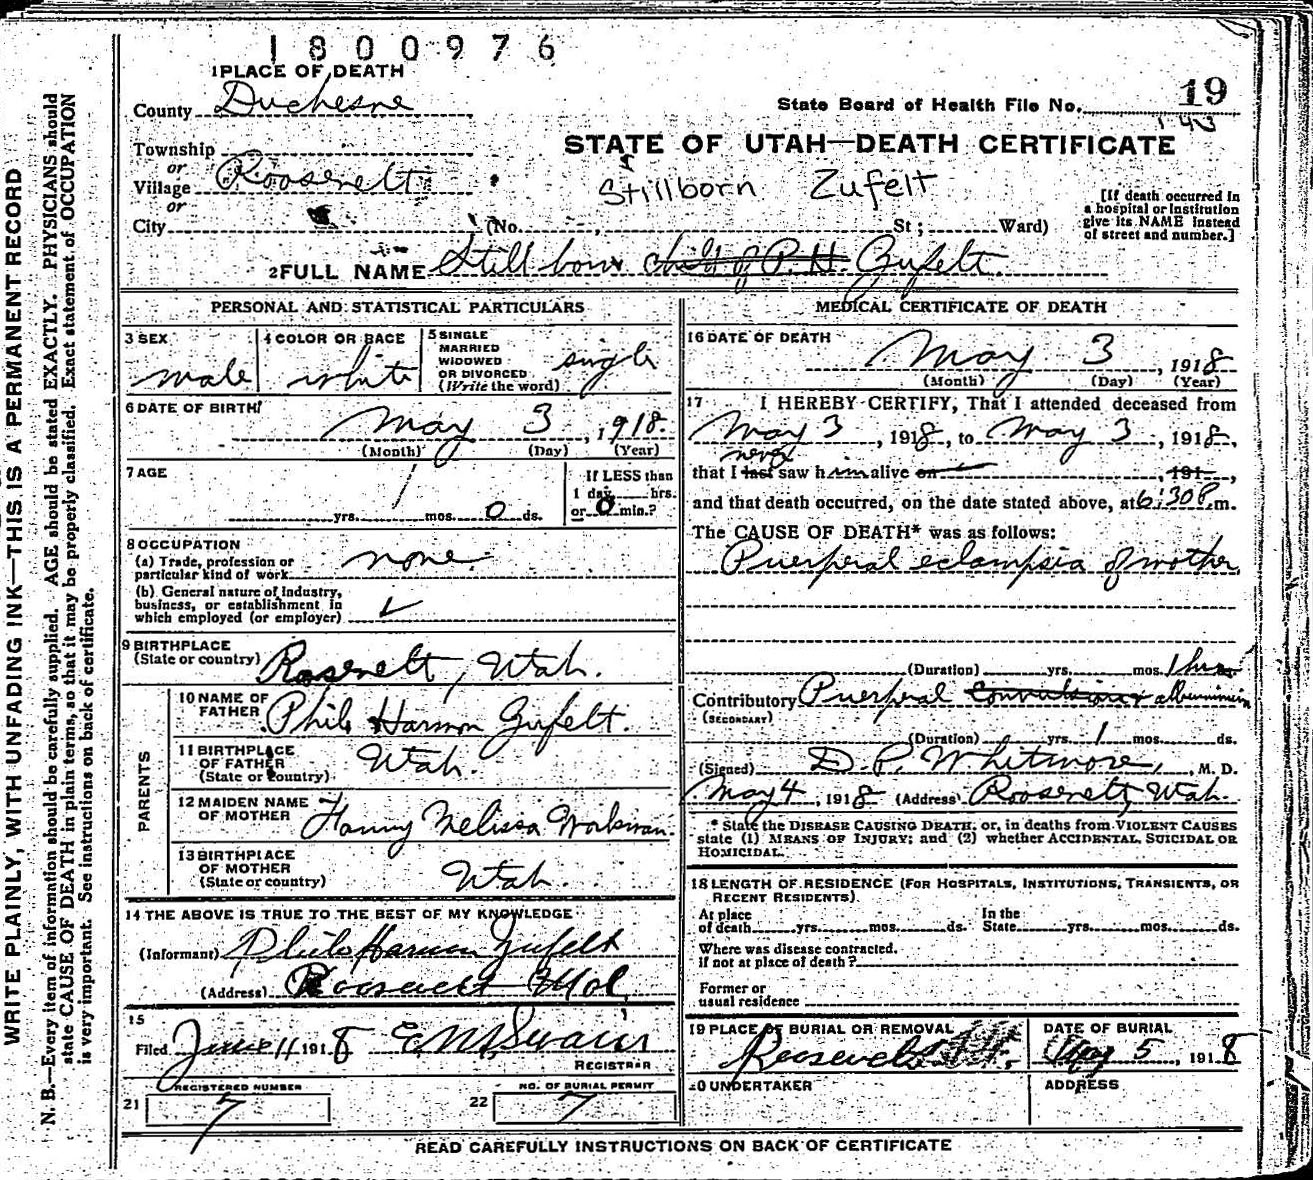 1800976
1 PLACE OF DEATH
County Duchesne
State Board of Health File No. 19
143
STATE OF UTAH—DEATH CERTIFICATE
Township
or
Village Roosevelt
or
Stillborn Zufelt
City (No. St ; Ward)
[If death occurred in
a hospital or institution
give its NAME instead
of street and number.]
2 FULL NAME Still born child of P. H. Zufelt.
PERSONAL AND STATISTICAL PARTICULARS
3 SEX
male
4 COLOR OR RACE
white
5 SINGLE
MARRIED
WIDOWED
OR DIVORCED
(Write the word)
single
6 DATE OF BIRTH
May 3, 1918.
(Month) (Day) (Year)
7 AGE
yrs. mos. 0 ds.
If LESS than
1 day hrs.
or 0 min.?
8 OCCUPATION
(a) Trade, profession or
particular kind of work none
(b) General nature of industry,
business, or establishment in
which employed (or employer)
9 BIRTHPLACE
(State or country) Roosevelt, Utah.
PARENTS
10 NAME OF
FATHER Philo Harmon Zufelt.
11 BIRTHPLACE
OF FATHER
(State or Country) Utah.
12 MAIDEN NAME
OF MOTHER Fanny Melissa Workman.
13 BIRTHPLACE
OF MOTHER
(State or country) Utah.
14 THE ABOVE IS TRUE TO THE BEST OF MY KNOWLEDGE
(Informant) Philo Harmon Zufelt
(Address) Roosevelt
15
Filed June 11 1918 E. M. Swain
REGISTRAR
REGISTERED NUMBER
21 7
NO. OF BURIAL PERMIT
22 7
MEDICAL CERTIFICATE OF DEATH
16 DATE OF DEATH
May 3, 1918
(Month) (Day) (Year)
17 I HEREBY CERTIFY, That I attended deceased from
May 3, 1918, to May 3, 1918,
never
that I last saw him alive on , 191 ,
and that death occurred, on the date stated above, at 6:30 P.m.
The CAUSE OF DEATH* was as follows:
Puerperal eclampsia of mother
(Duration) yrs. mos. 1 hrs.
Contributory Puerperal convulsions
(SECONDARY)
(Duration) yrs. 1 mos. ds.
(Signed) D. P. Whitmore, M. D.
May 4, 1918 (Address) Roosevelt, Utah.
* State the DISEASE CAUSING DEATH, or, in deaths from VIOLENT CAUSES
state (1) MEANS OF INJURY; and (2) whether ACCIDENTAL, SUICIDAL OR
HOMICIDAL.
18 LENGTH OF RESIDENCE (FOR HOSPITALS, INSTITUTIONS, TRANSIENTS, OR
RECENT RESIDENTS).
At place
of death yrs. mos. ds.
In the
State yrs. mos. ds.
Where was disease contracted,
if not at place of death?
Former or
usual residence
19 PLACE OF BURIAL OR REMOVAL
Roosevelt
DATE OF BURIAL
May 5, 1918
20 UNDERTAKER
ADDRESS
READ CAREFULLY INSTRUCTIONS ON BACK OF CERTIFICATE
WRITE PLAINLY, WITH UNFADING INK—THIS IS A PERMANENT RECORD
N. B.—Every item of information should be carefully supplied. AGE should be stated EXACTLY. PHYSICIANS should
state CAUSE OF DEATH in plain terms, so that it may be properly classified. Exact statement of OCCUPATION
is very important. See instructions on back of certificate.